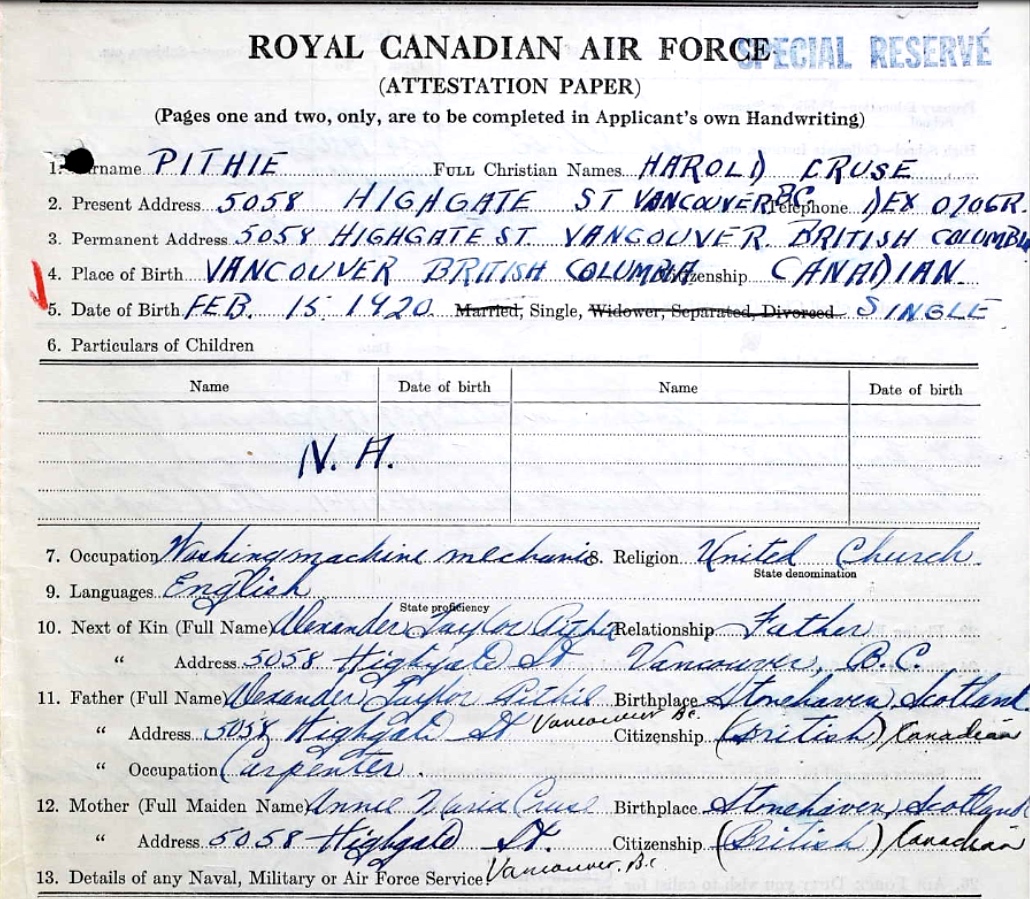 ROYAL CANADIAN AIR FORCE SPECIAL RESERVE
(ATTESTATION PAPER)
(Pages one and two, only, are to be completed in Applicant's own Handwriting)
1. Surname PITHIE FULL Christian Names HAROLD CRUSE
2. Present Address 5058 HIGHGATE ST VANCOUVER B.C. Telephone DEX 0706R.
3. Permanent Address 5058 HIGHGATE ST. VANCOUVER. BRITISH COLUMBIA
4. Place of Birth VANCOUVER BRITISH COLUMBIA Citizenship CANADIAN.
5. Date of Birth FEB. 15. 1920. Married, Single, Widower, Separated, Divorced SINGLE
6. Particulars of Children
Name Date of birth Name Date of birth
N. A.
7. Occupation Washing machine mechanic 8. Religion United Church.
State denomination
9. Languages English.
State proficiency
10. Next of Kin (Full Name) Alexander Taylor Pithie Relationship Father
" Address 5058 Highgate St Vancouver, B.C.
11. Father (Full Name) Alexander Taylor Pithie Birthplace Stonehaven, Scotland
" Address 5058 Highgate St Vancouver B.C. Citizenship (British) Canadian
" Occupation Carpenter.
12. Mother (Full Maiden Name) Annie Maria Cruse Birthplace Stonehaven, Scotland
" Address 5058 Highgate St. Citizenship (British) Canadian
Vancouver. B.C.
13. Details of any Naval, Military or Air Force Service.